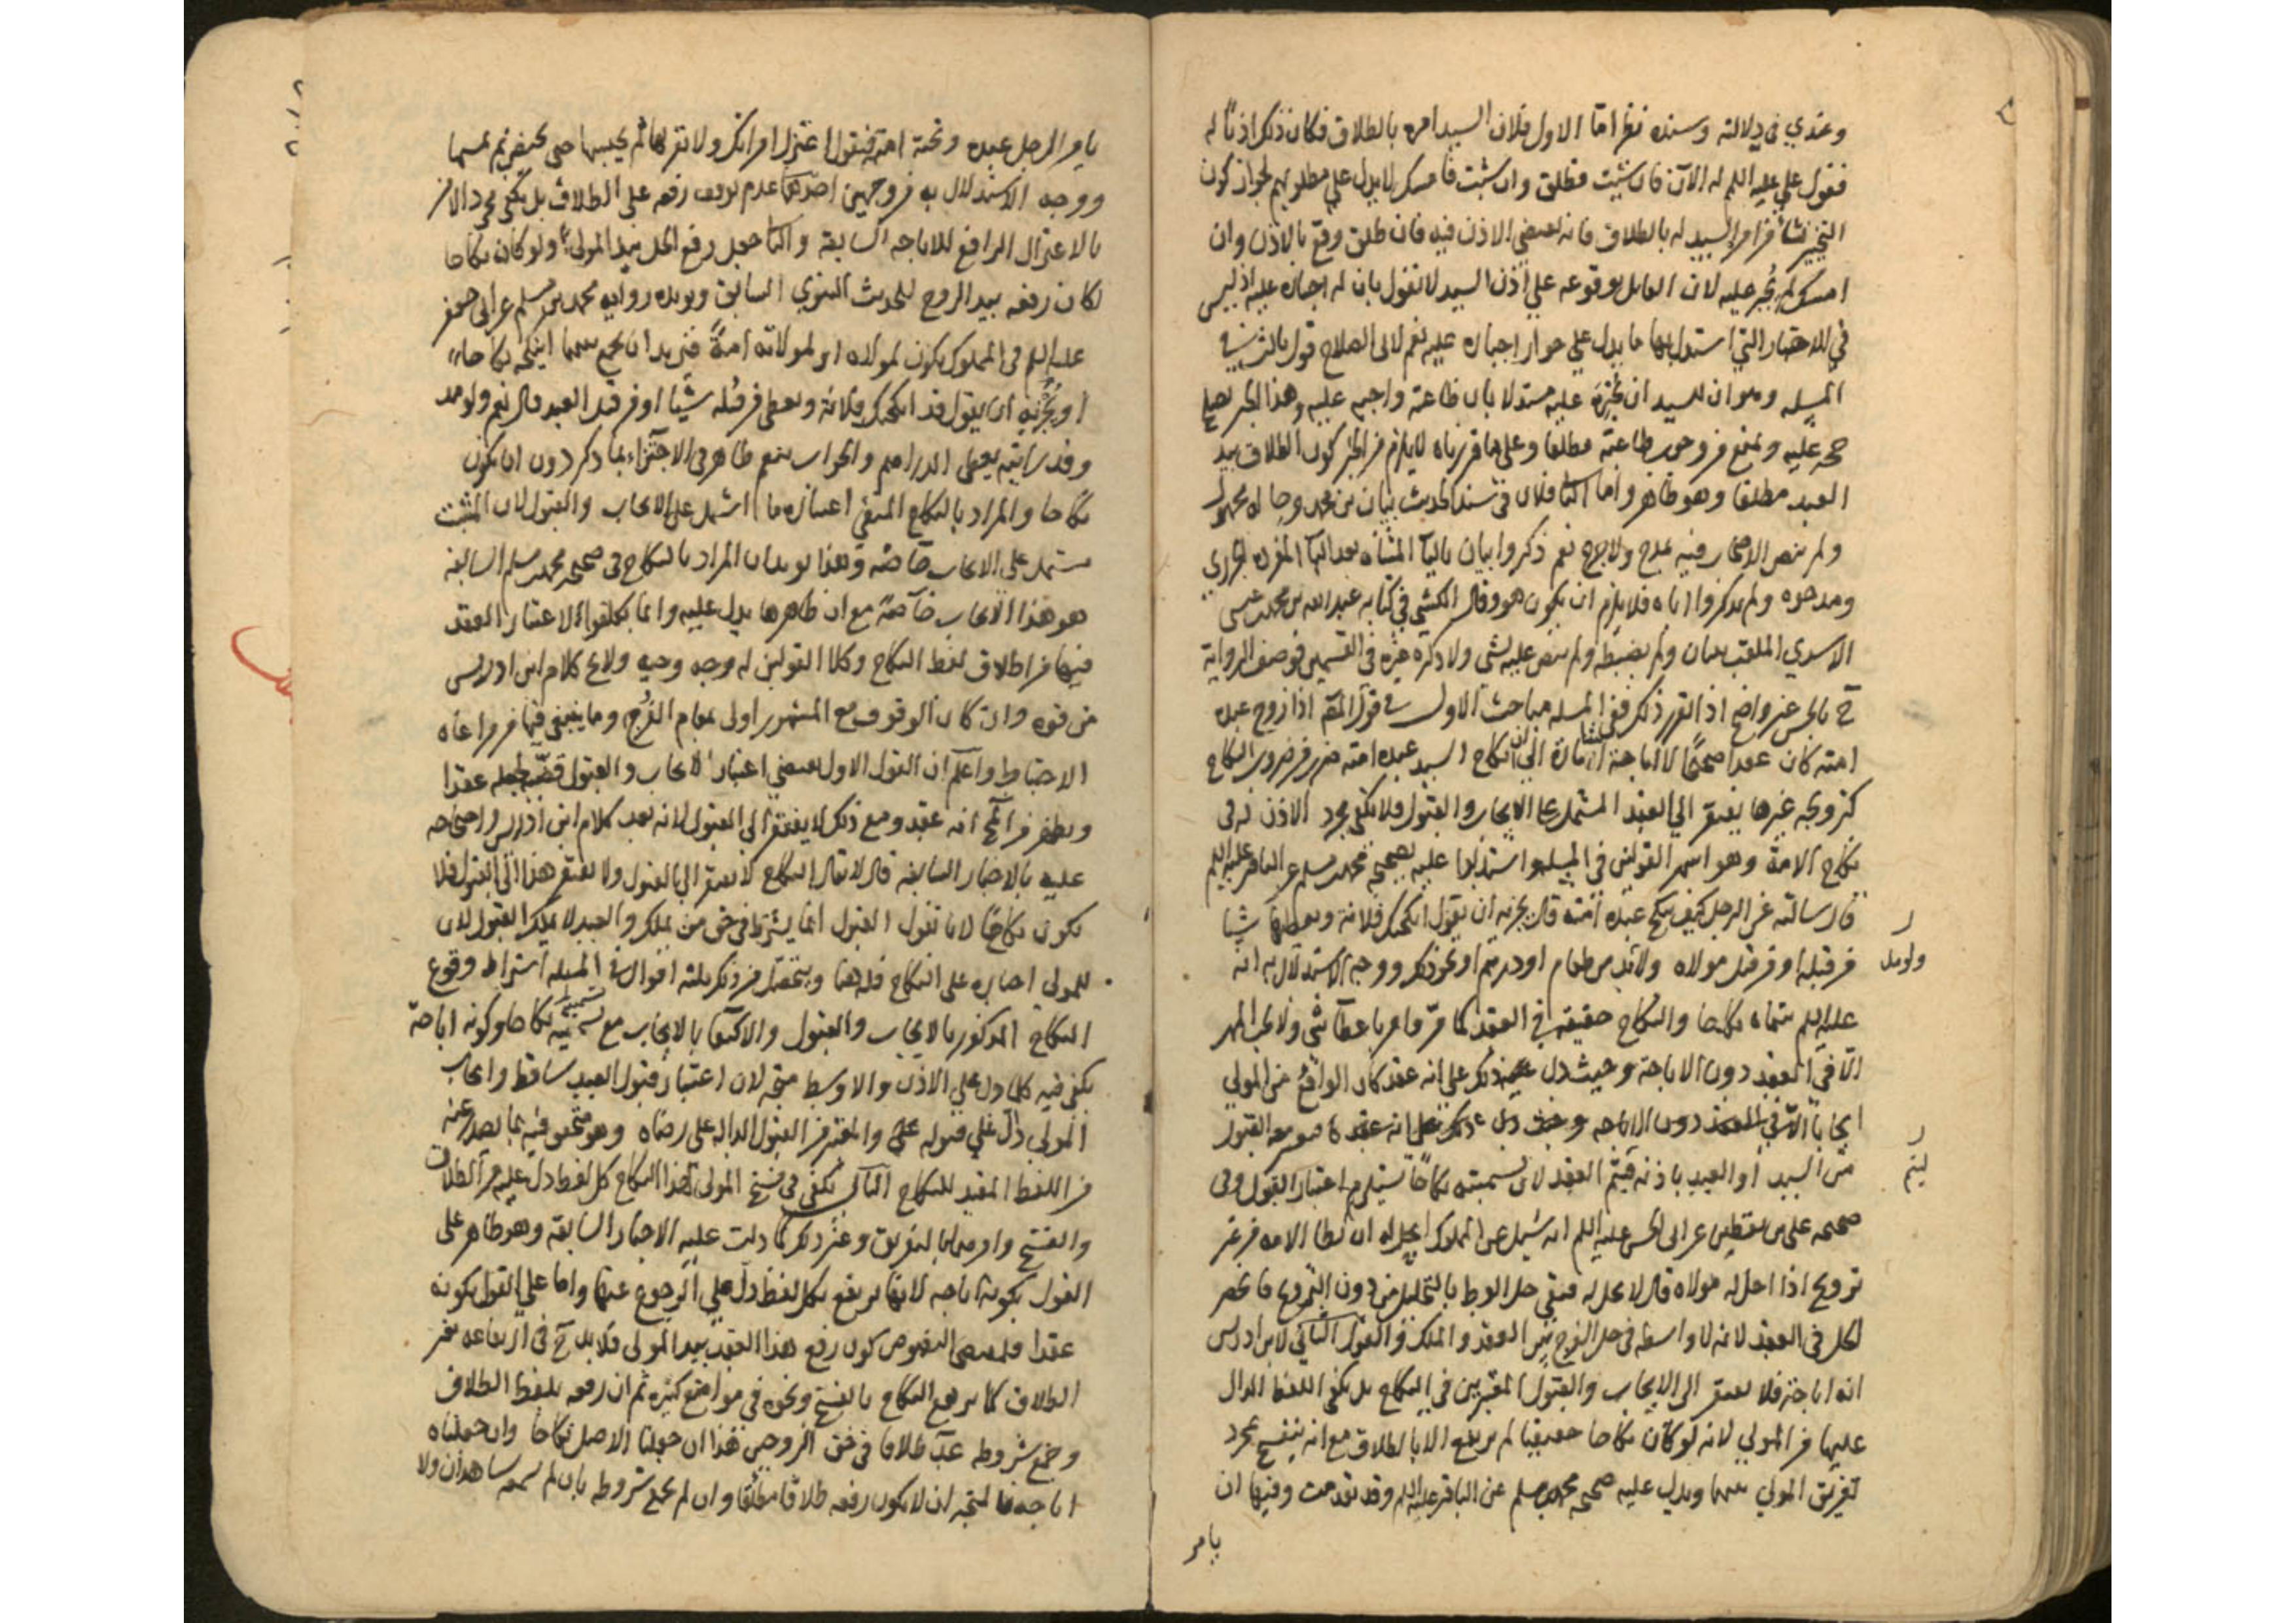 وعندي في دلالته وسنده نظر اما الاول فلان السيد امره بالطلاق فكان ذلك اذنا له
فقول علي عليه السلم له الآن فان شئت فطلق وان شئت فامسك لا يدل على مطلوبهم لجواز كون
التخيير نشأ من امر السيد له بالطلاق فانه يقتضي الاذن فيه فان طلق وقع بالاذن وان
امسك لم يجبر عليه لان القايل بوقوعه على اذن السيد لا نقول بان له اجباره عليه اذ ليس
في الاخبار التي استدل بها ما يدل على جواز اجباره عليه نعم لابي الصلاح قول ثالث في
المسئله وهو ان للسيد ان يجبره عليه مستدلا بان طاعته واجبه عليه وهذا الخبر يصلح
حجه عليه ويمنع من وجوب طاعته مطلقا وعلى ما قررناه لا يلزم من الخبر كون الطلاق بيد
العبد مطلقا وهو ظاهر واما الثاني فلان في سند الحديث بنان بن محمد وحاله مجهول
ولم ينص الاصحاب فيه بمدح ولا جرح نعم ذكروا بيان بالياء المثناه بعد الباء المفرده الجزري
ومدحوه ولم يذكروا اباه فلا يلزم ان يكون هو وقال الكشي في كتابه عبد الله بن محمد بن عيسى
الاسدي الملقب ببنان ولم يضبطه ولم ينص عليه بشي ولا ذكره غيره في القسمين فوصف الرواية
ح بالحسن غير واضح اذا تقرر ذلك ففي المسئله مباحث الاول في قول المص اذا زوج عبده
امته كان عقدا صحيحا لا اباحة اشارة الى ان انكاح السيد عبده امته ضرب من ضروب النكاح
كتزويجه غيرها يفتقر الى العقد المشتمل على الايجاب والقبول فلا يكفي مجرد الاذن له في
نكاح الامة وهو اشهر القولين في المسئله واستدلوا عليه بصحيحة محمد بن مسلم عن الباقر عليه السلم
قال سالته عن الرجل كيف ينكح عبده امته قال يجزيه ان يقول انكحتك فلانة ويعطيها شيا
من قبله او من قبل مولاه ولابد من طعام او درهم او نحو ذلك ووجه الاستدلال به انه
ولو بمد
عليه السلم سماه نكاحا والنكاح حقيقة في العقد كما مر وامر باعطاء شي ولا يجب المهر
الا في العقد دون الاباحة وحيث دل ذلك على انه عقد كان الواقع من المولى
ايجابا
من السيد او العبد باذنه فيتم العقد لان تسميته نكاحا يستلزم اعتبار القبول وفي
صحيحه علي بن يقطين عن ابي الحسن عليه السلم انه سئل عن المملوك ايحل له ان يطا الامه من غير
تزويج اذا احل له مولاه قال لا يحل له فنفى حل الوطء بالتحليل من دون التزويج فانحصر
الحل في العقد لانه لا واسطه في حل الفرج بين العقد والملك والقول الثاني لابن ادريس
انه اباحة فلا يفتقر الى الايجاب والقبول المعتبرين في النكاح بل يكفي اللفظ الدال
عليها من المولى لانه لو كان نكاحا حقيقيا لم يرتفع الا بالطلاق مع انه ينفسخ بمجرد
تفريق المولى بينهما ويدل عليه صحيحه محمد بن مسلم عن الباقر عليه السلم وقد تقدمت وفيها ان
يامر
يامر الرجل عبده وتحته امته فيقول اعتزل امراتك ولا تقربها ثم يحبسها حتى تحيض ثم يمسها
ووجه الاستدلال به من وجهين احدهما عدم توقف رفعه على الطلاق بل يكفي مجرد الامر
بالاعتزال الرافع للاباحه السابقة والثاني جعل رفع الحل بيد المولى ولو كان نكاحا
لكان رفعه بيد الزوج للحديث النبوي السابق ويؤيده روايه محمد بن مسلم عن ابي جعفر
عليه السلم في المملوك يكون لمولاه او لمولاته امة فيريد ان يجمع بينهما اينكحه نكاحا
او يجزيه ان يقول قد انكحتك فلانة ويعطي من قبله شيا او من قبل العبد قال نعم ولو مد
وقد رايته يعطي الدراهم والجواب بنعم ظاهر في الاجتزاء بما ذكر دون ان يكون
نكاحا والمراد بالنكاح المنفي اعتباره ما اشتمل على الايجاب والقبول لان المثبت
مشتمل على الايجاب خاصه وهذا يؤيد ان المراد بالنكاح في صحيح محمد بن مسلم السابقه
هو هذا الايجاب خاصة مع ان ظاهرها يدل عليه وانما تكلفوا الاعتبار العقد
فيها من اطلاق لفظ النكاح وكلا القولين له وجه وجيه ولا يخ كلام ابن ادريس
من قوه وان كان الوقوف مع المشهور اولى بمقام الفرج وما ينبغي فيها من مراعاه
الاحتياط واعلم ان القول الاول يقتضي اعتبار الايجاب والقبول قضية لجعله عقدا
ويظهر من انه عقد ومع ذلك لا يفتقر الى القبول لانه بعد كلام ابن ادريس واحتجاجه
عليه بالاخبار السابقه قال لا يقال النكاح يفتقر الى القبول ولا يفتقر هذا الى القبول فلا
يكون نكاحا لانا نقول القبول انما يشترط في حق من يملك والعبد لا يملك القبول لان
للمولى اجباره على النكاح فله هنا ويتحصل من ذلك ثلثه اقوال في المسئله اشتراط وقوع
النكاح المذكور بالايجاب والقبول والاكتفا بالايجاب مع تسميته نكاحا وكونه اباحة
يكفي فيه كلما دل على الاذن والاوسط متجه لان اعتبار قبول العبد ساقط وايجاب
المولى دال على قبوله والمعتبر من القبول الداله على رضاه وهو متحقق فيه بما يصدر عنه
من اللفظ المفيد للنكاح الثاني يكفي في فسخ المولى لهذا النكاح كل لفظ دل عليه من الطلاق
والفسخ وامرهما بالتفريق وغير ذلك كما دلت عليه الاخبار السابقة وهو ظاهر على
القول بكونه اباحه لانها ترتفع بكل لفظ دل على الرجوع عنها واما على القول بكونه
عقدا فلمقتضى النصوص كون رفع هذا العقد بيد المولى فلا بد ح في ارتفاعه بغير
الطلاق كما يرتفع النكاح بالفسخ ونحوه في مواضع كثيره ثم ان رفعه بلفظ الطلاق
وجمع شروطه عد طلاقا في حق الزوجين هذا ان جعلنا الاصل نكاحا وان جعلناه
اباحه فالمتجه ان لا يكون رفعه طلاقا مطلقا وان لم يجمع شروطه بان لم يسمعه شاهدان ولا